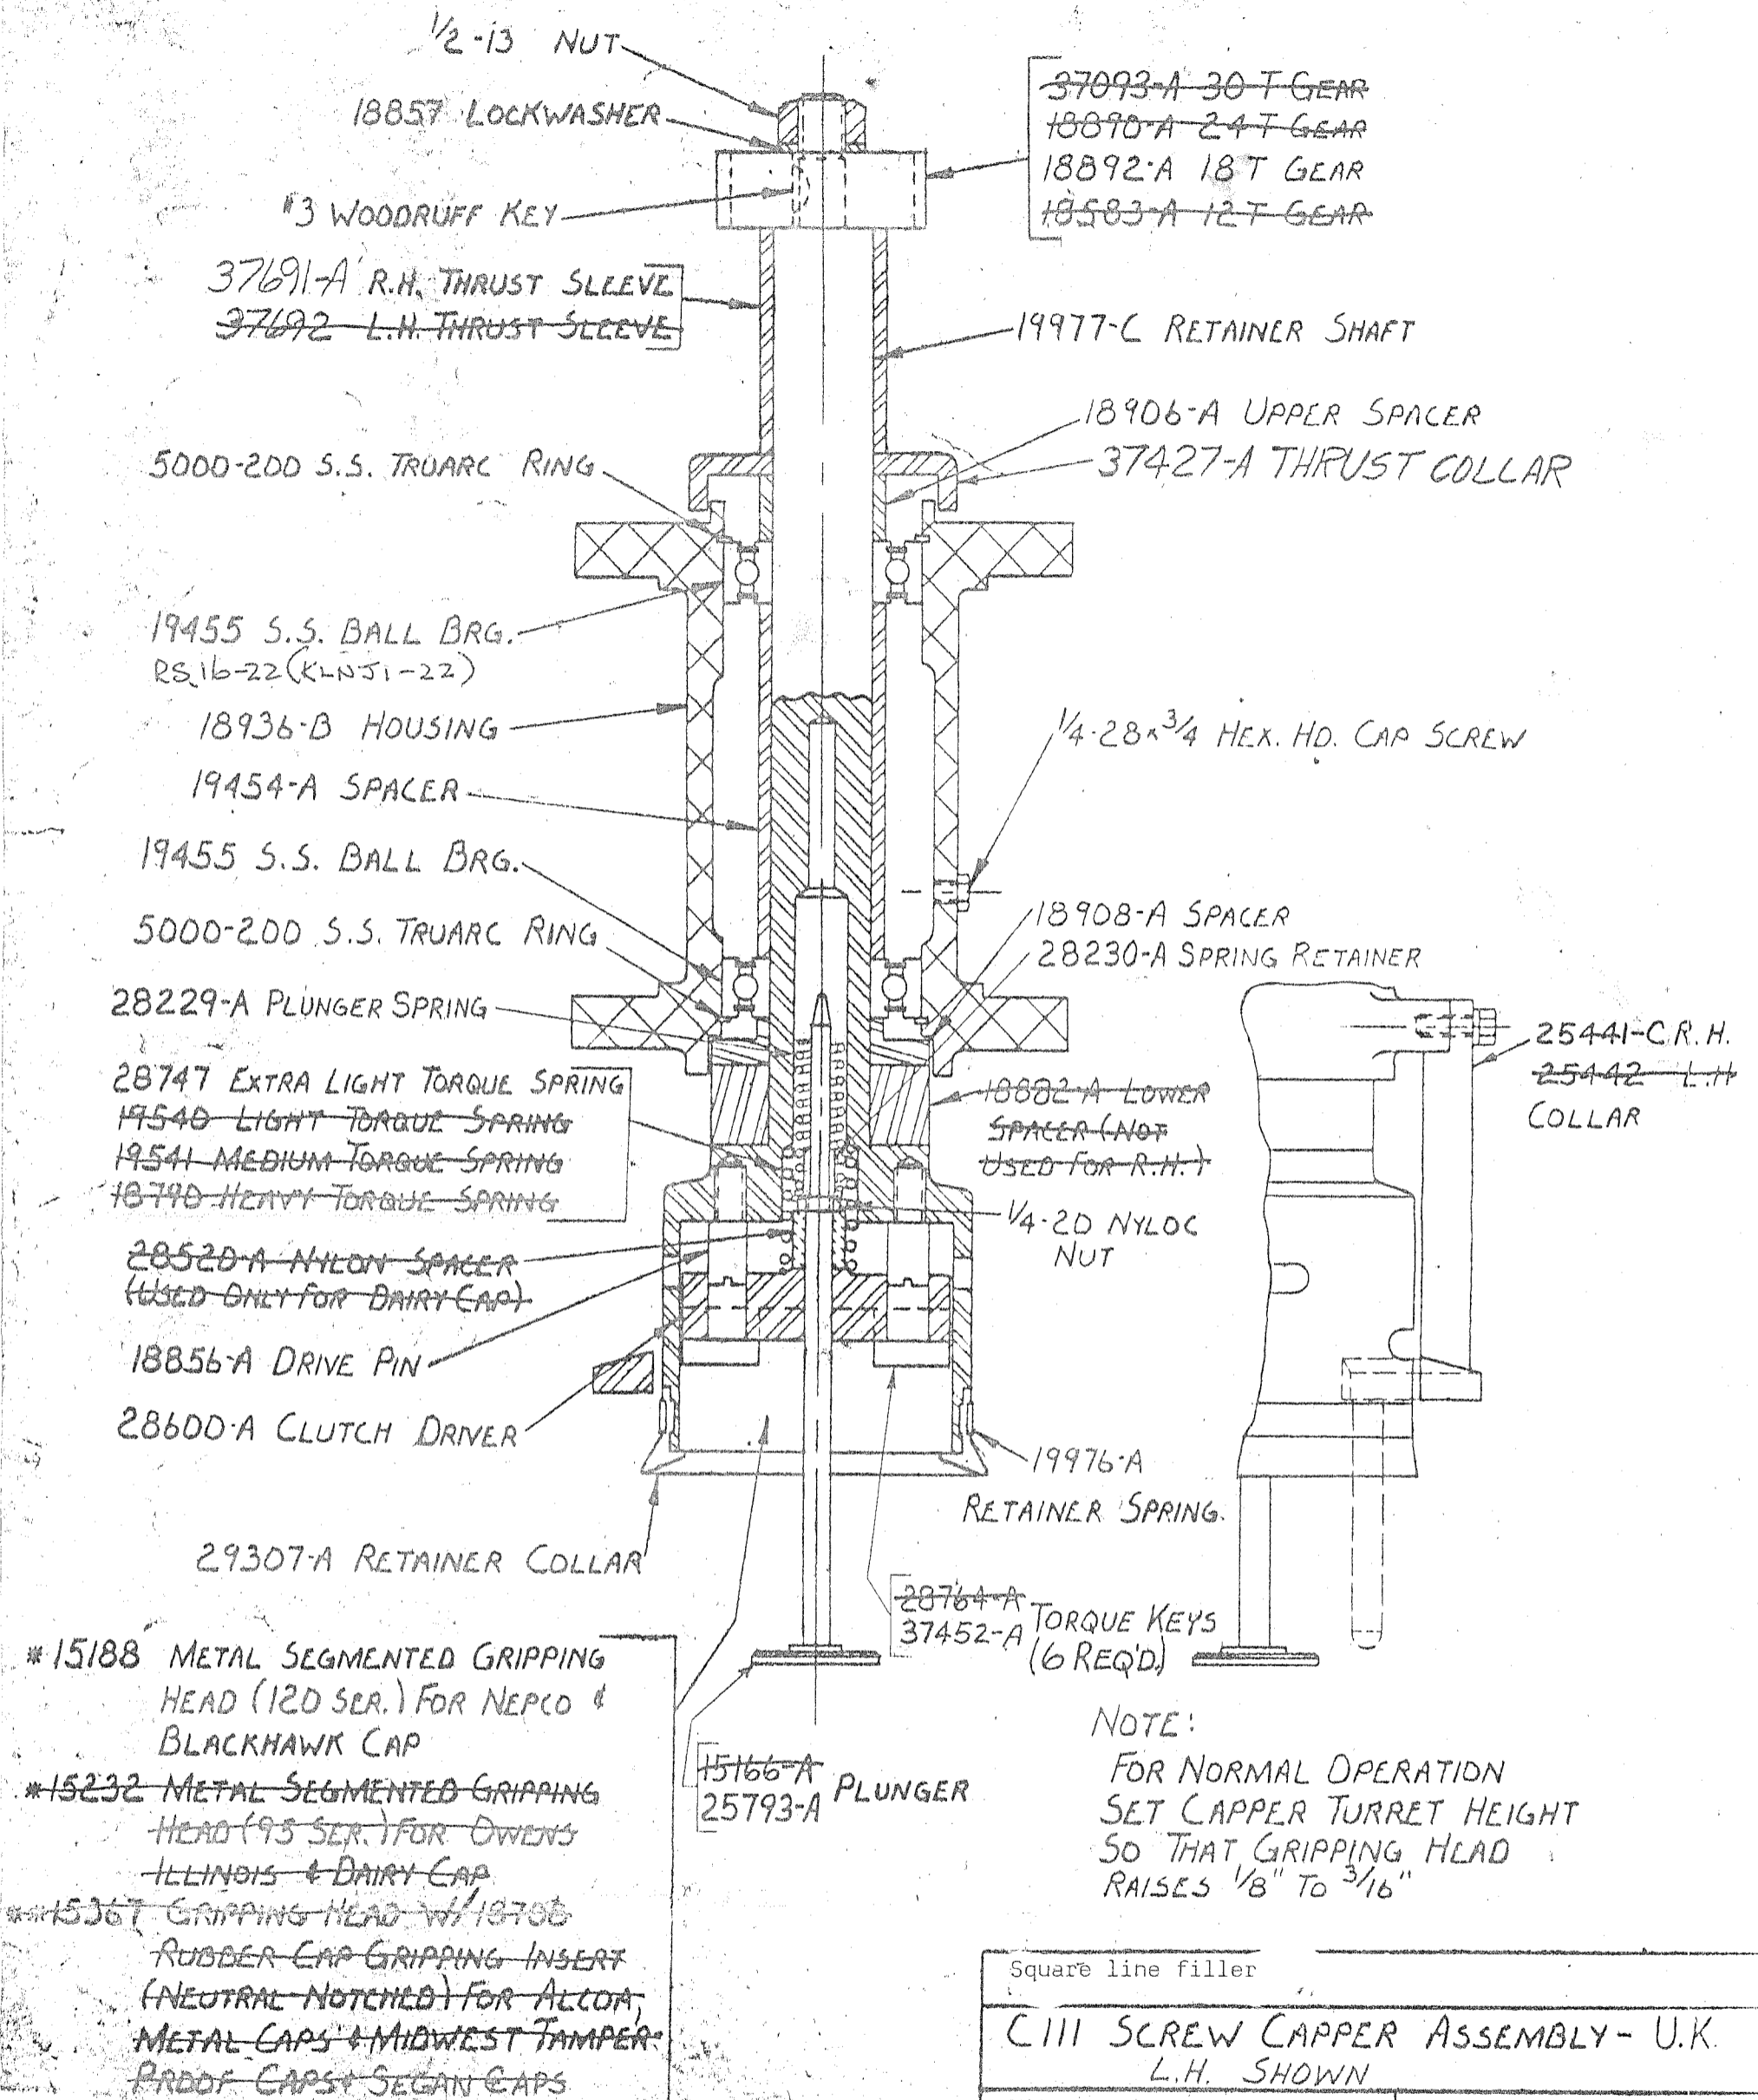 1/2-13 NUT
18857 LOCKWASHER
#3 WOODRUFF KEY
37691-A R.H. THRUST SLEEVE
37692 L.H. THRUST SLEEVE
5000-200 S.S. TRUARC RING
19455 S.S. BALL BRG.
RS.16-22 (KLNJ1-22)
18936-B HOUSING
19454-A SPACER
19455 S.S. BALL BRG.
5000-200 S.S. TRUARC RING
28229-A PLUNGER SPRING
28747 EXTRA LIGHT TORQUE SPRING
19540 LIGHT TORQUE SPRING
19541 MEDIUM TORQUE SPRING
18790 HEAVY TORQUE SPRING
28520-A NYLON SPACER
(USED ONLY FOR DAIRY CAP)
18856-A DRIVE PIN
28600-A CLUTCH DRIVER
29307-A RETAINER COLLAR
*15188 METAL SEGMENTED GRIPPING
HEAD (120 SER.) FOR NEPCO &
BLACKHAWK CAP
*15232 METAL SEGMENTED GRIPPING
HEAD (95 SER.) FOR OWENS
ILLINOIS & DAIRY CAP
**15367 GRIPPING HEAD W/18708
RUBBER CAP GRIPPING INSERT
(NEUTRAL-NOTCHED) FOR ALCOA,
METAL CAPS & MIDWEST TAMPER-
PROOF CAPS & SEGAN CAPS
37093-A 30 T GEAR
18890-A 24 T GEAR
18892-A 18 T GEAR
18583-A 12 T GEAR
19977-C RETAINER SHAFT
18906-A UPPER SPACER
37427-A THRUST COLLAR
1/4-28 x 3/4 HEX. HD. CAP SCREW
18908-A SPACER
28230-A SPRING RETAINER
25441-C R.H.
25442 L.H
COLLAR
18882-A LOWER
SPACER (NOT
USED FOR R.H.)
1/4-20 NYLOC
NUT
19976-A
RETAINER SPRING.
28764-A
37452-A TORQUE KEYS
(6 REQ'D.)
15166-A
25793-A PLUNGER
NOTE:
FOR NORMAL OPERATION
SET CAPPER TURRET HEIGHT
SO THAT GRIPPING HEAD
RAISES 1/8" TO 3/16"
Square line filler
C111 SCREW CAPPER ASSEMBLY - U.K.
L.H. SHOWN